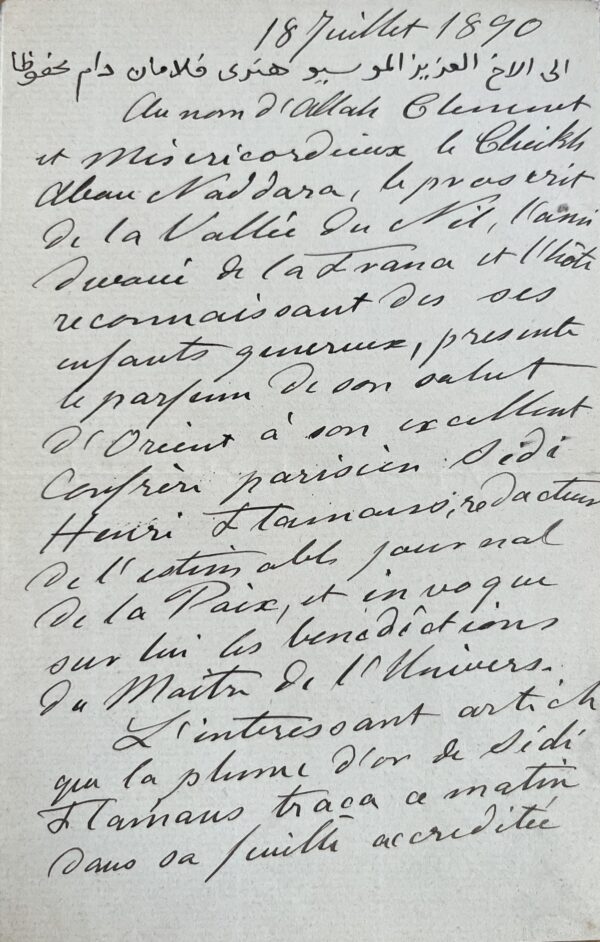 18 Juillet 1890
الى الاخ العزيز الموسيو هنرى فلامان دام محفوظا
Au nom d'Allah Clement
et Misericordieux le Cheikh
Abou Naddara, le proscrit
de la Vallée du Nil, l'ami
devoué de la France et l'hôte
reconnaissant des ses
enfants genereux, presente
le parfum de son salut
d'Orient à son excellent
Confrère parisien Sidi
Henri Flamans, redacteur
de l'estimable journal
de la Paix, et invoque
sur lui les benedictions
du Maitre de l'Univers.
L'interessant article
que la plume d'or de Sidi
Flamans traca ce matin
dans sa feuille accreditée